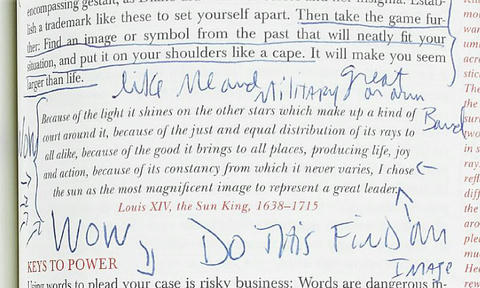 encompassing gestalt, as
lish a trademark like these to set yourself apart. Then take the game fur-
ther: Find an image or symbol from the past that will neatly fit your
situation, and put it on your shoulders like a cape. It will make you seem
larger than life.
like me and Military great on arm
Band
Because of the light it shines on the other stars which make up a kind of
court around it, because of the just and equal distribution of its rays to
all alike, because of the good it brings to all places, producing life, joy
and action, because of its constancy from which it never varies, I chose
the sun as the most magnificent image to represent a great leader.
Louis XIV, the Sun King, 1638–1715
Wow
WOW
DO THIS FIND an
IMAGE
KEYS TO POWER
Using words to plead your case is risky business: Words are dangerous in-